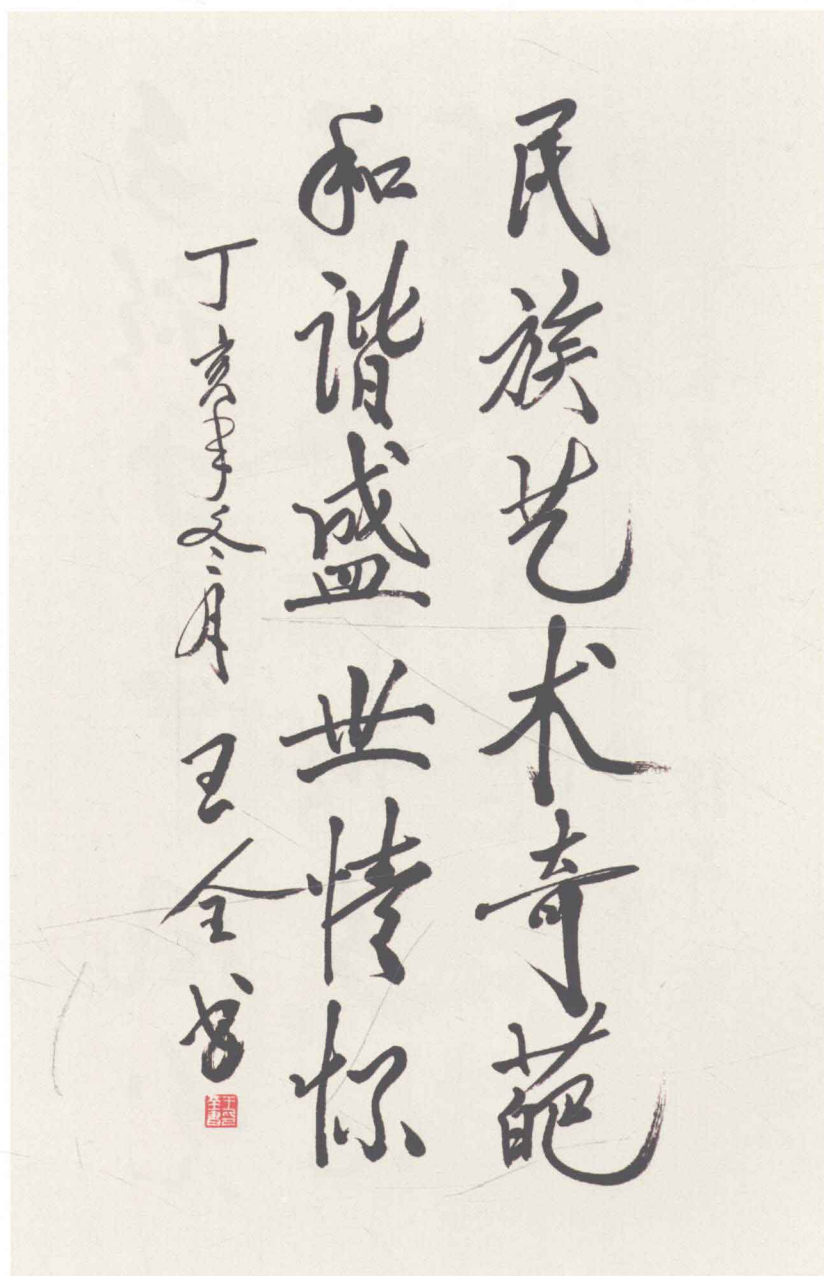 民族艺术奇葩
和谐盛世情怀
丁亥年冬月 王全书
王全书印